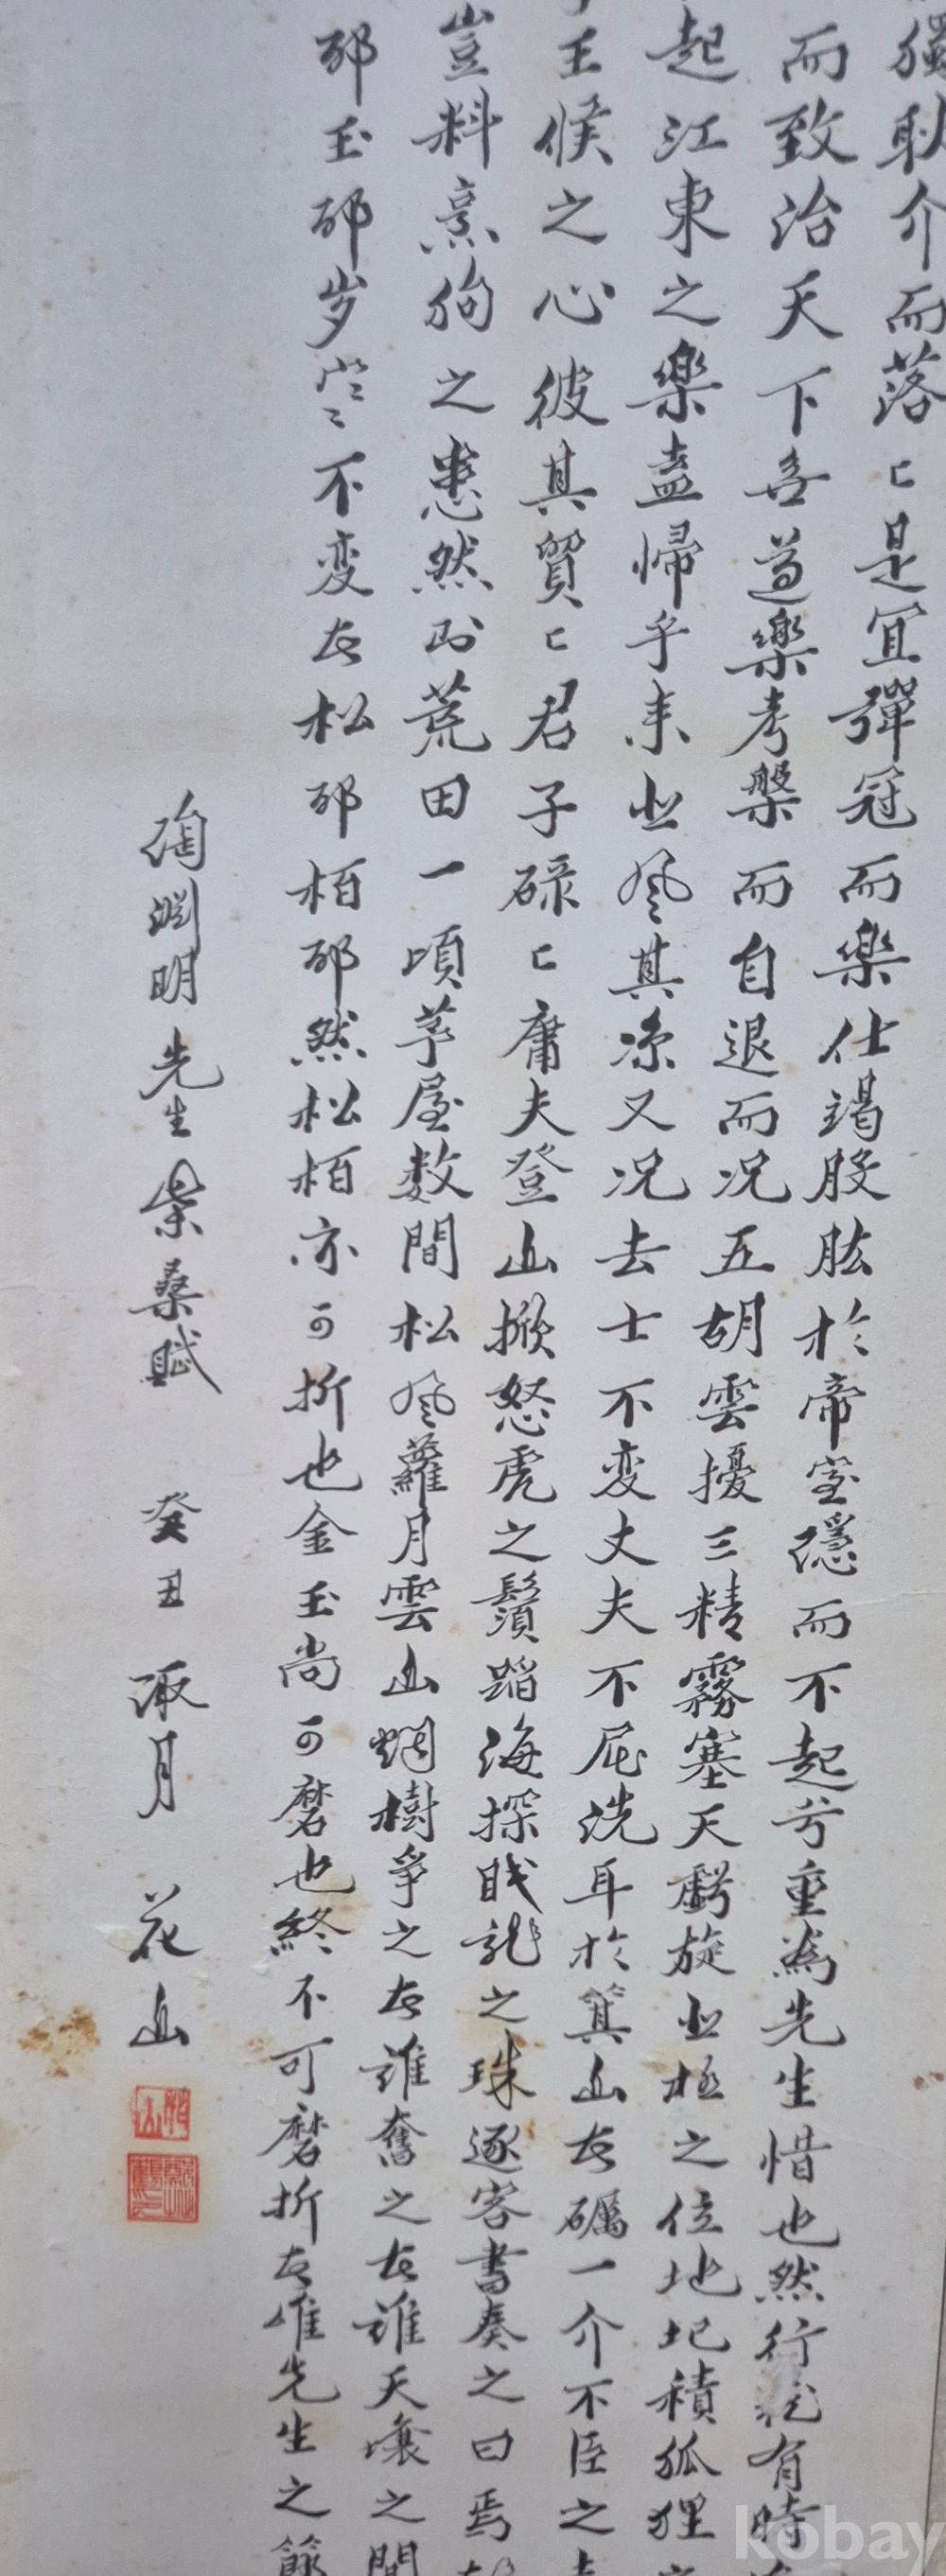 獨耿介而落〻是宜彈冠而樂仕竭股肱於帝室隱而不起兮重為先生惜也然行 有時
而致治天下吾道樂考槃而自退而况五胡雲擾三精霧塞天虧旋北極之位地圮積狐狸
起江東之樂盍帰乎来北风其凉又况志士不変丈夫不屁洗耳於箕山者礪一介不臣之
王候之心彼其貿〻君子碌〻庸夫登山掀怒虎之鬚蹈海探戝龍之珠逐客書奏之曰焉
豈料烹狗之患然而荒田一頃茅屋数間松风蘿月雲山烟樹爭之者誰奪之者誰天壤之間
耶玉耶岁寒不変者松耶栢耶然松栢亦可折也金玉尚可磨也終不可磨折者唯先生之節
陶淵明先生柴桑賦 癸丑 菊月 花山
kobay